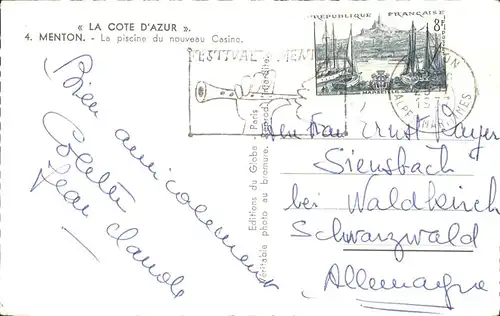 « LA COTE D'AZUR ».
4. MENTON. - La piscine du nouveau Casino.
REPUBLIQUE FRANÇAISE
8F
MARSEILLE
FESTIVAL MENT
ALPES MARITIMES
Bien amicalement
Colette
Jean Claude
Editions du Globe Paris
Véritable photo au bromure.
Ernst
Siensbach
bei Waldkirch
Schwarzwald
Allemagne